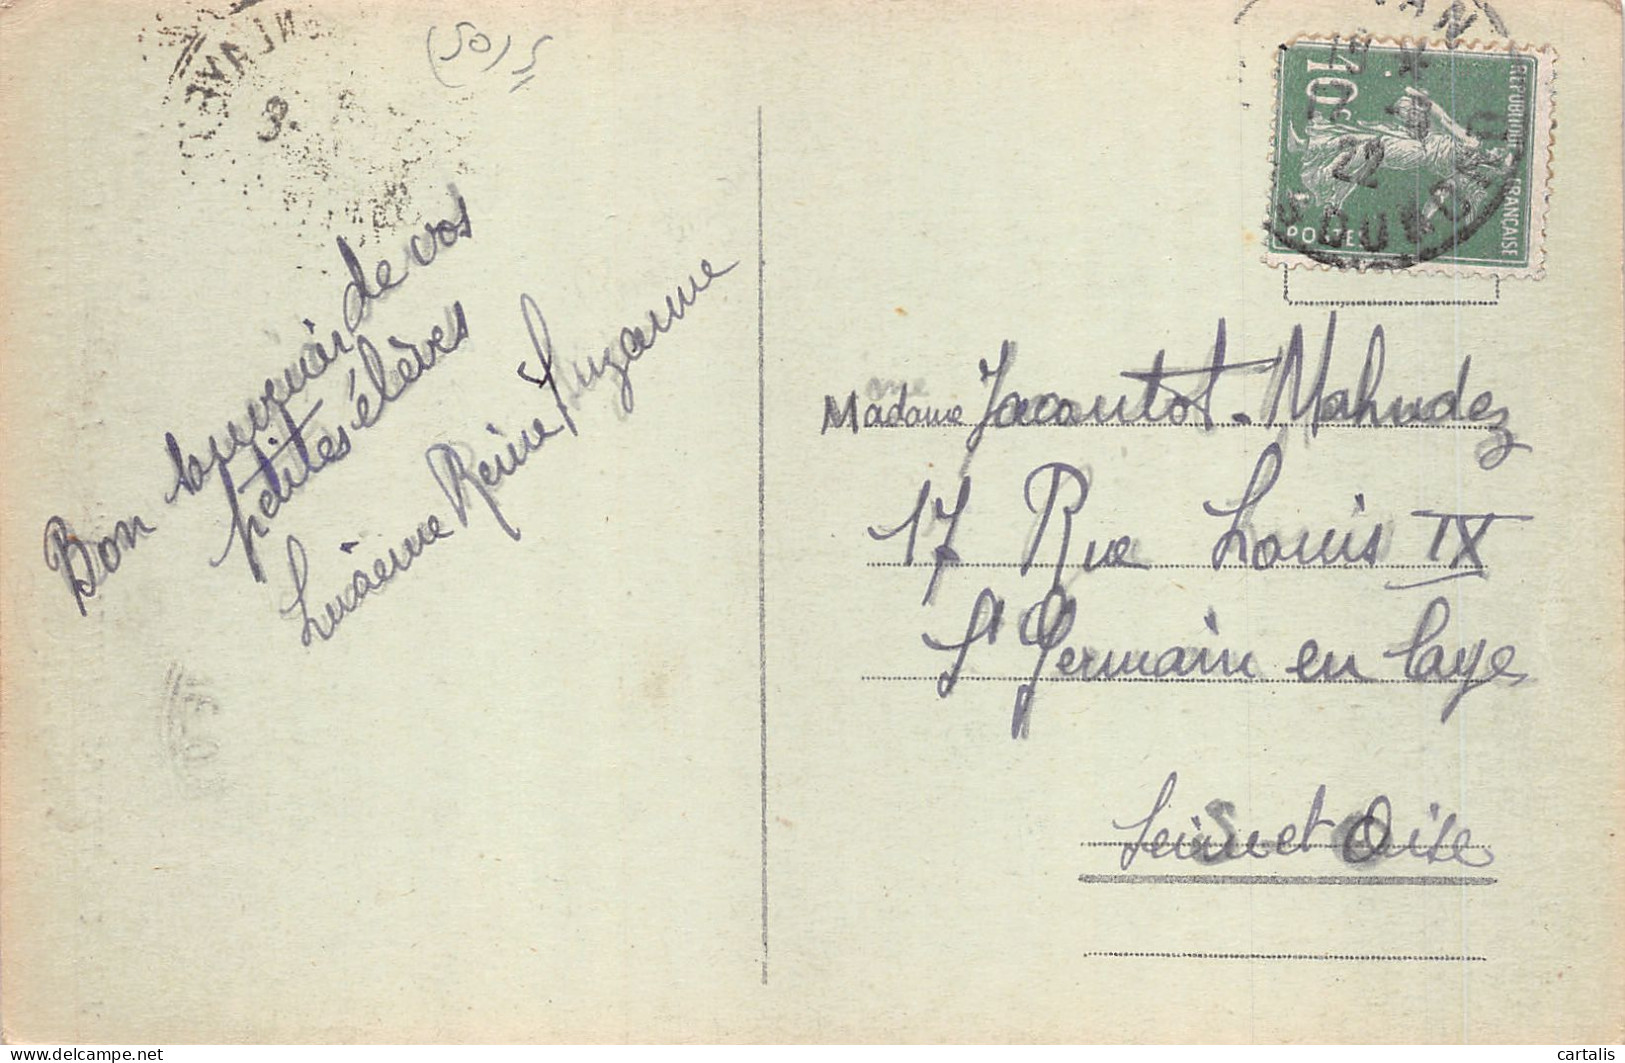 (50) 5
Bon souvenir de vos
petites élèves
Lucienne Reine Suzanne
10c
REPUBLIQUE FRANÇAISE
POSTES
22
Madame Jacoutot-Mahudez
17 Rue Louis IX
St Germain en Laye
Seine et Oise
cartalis